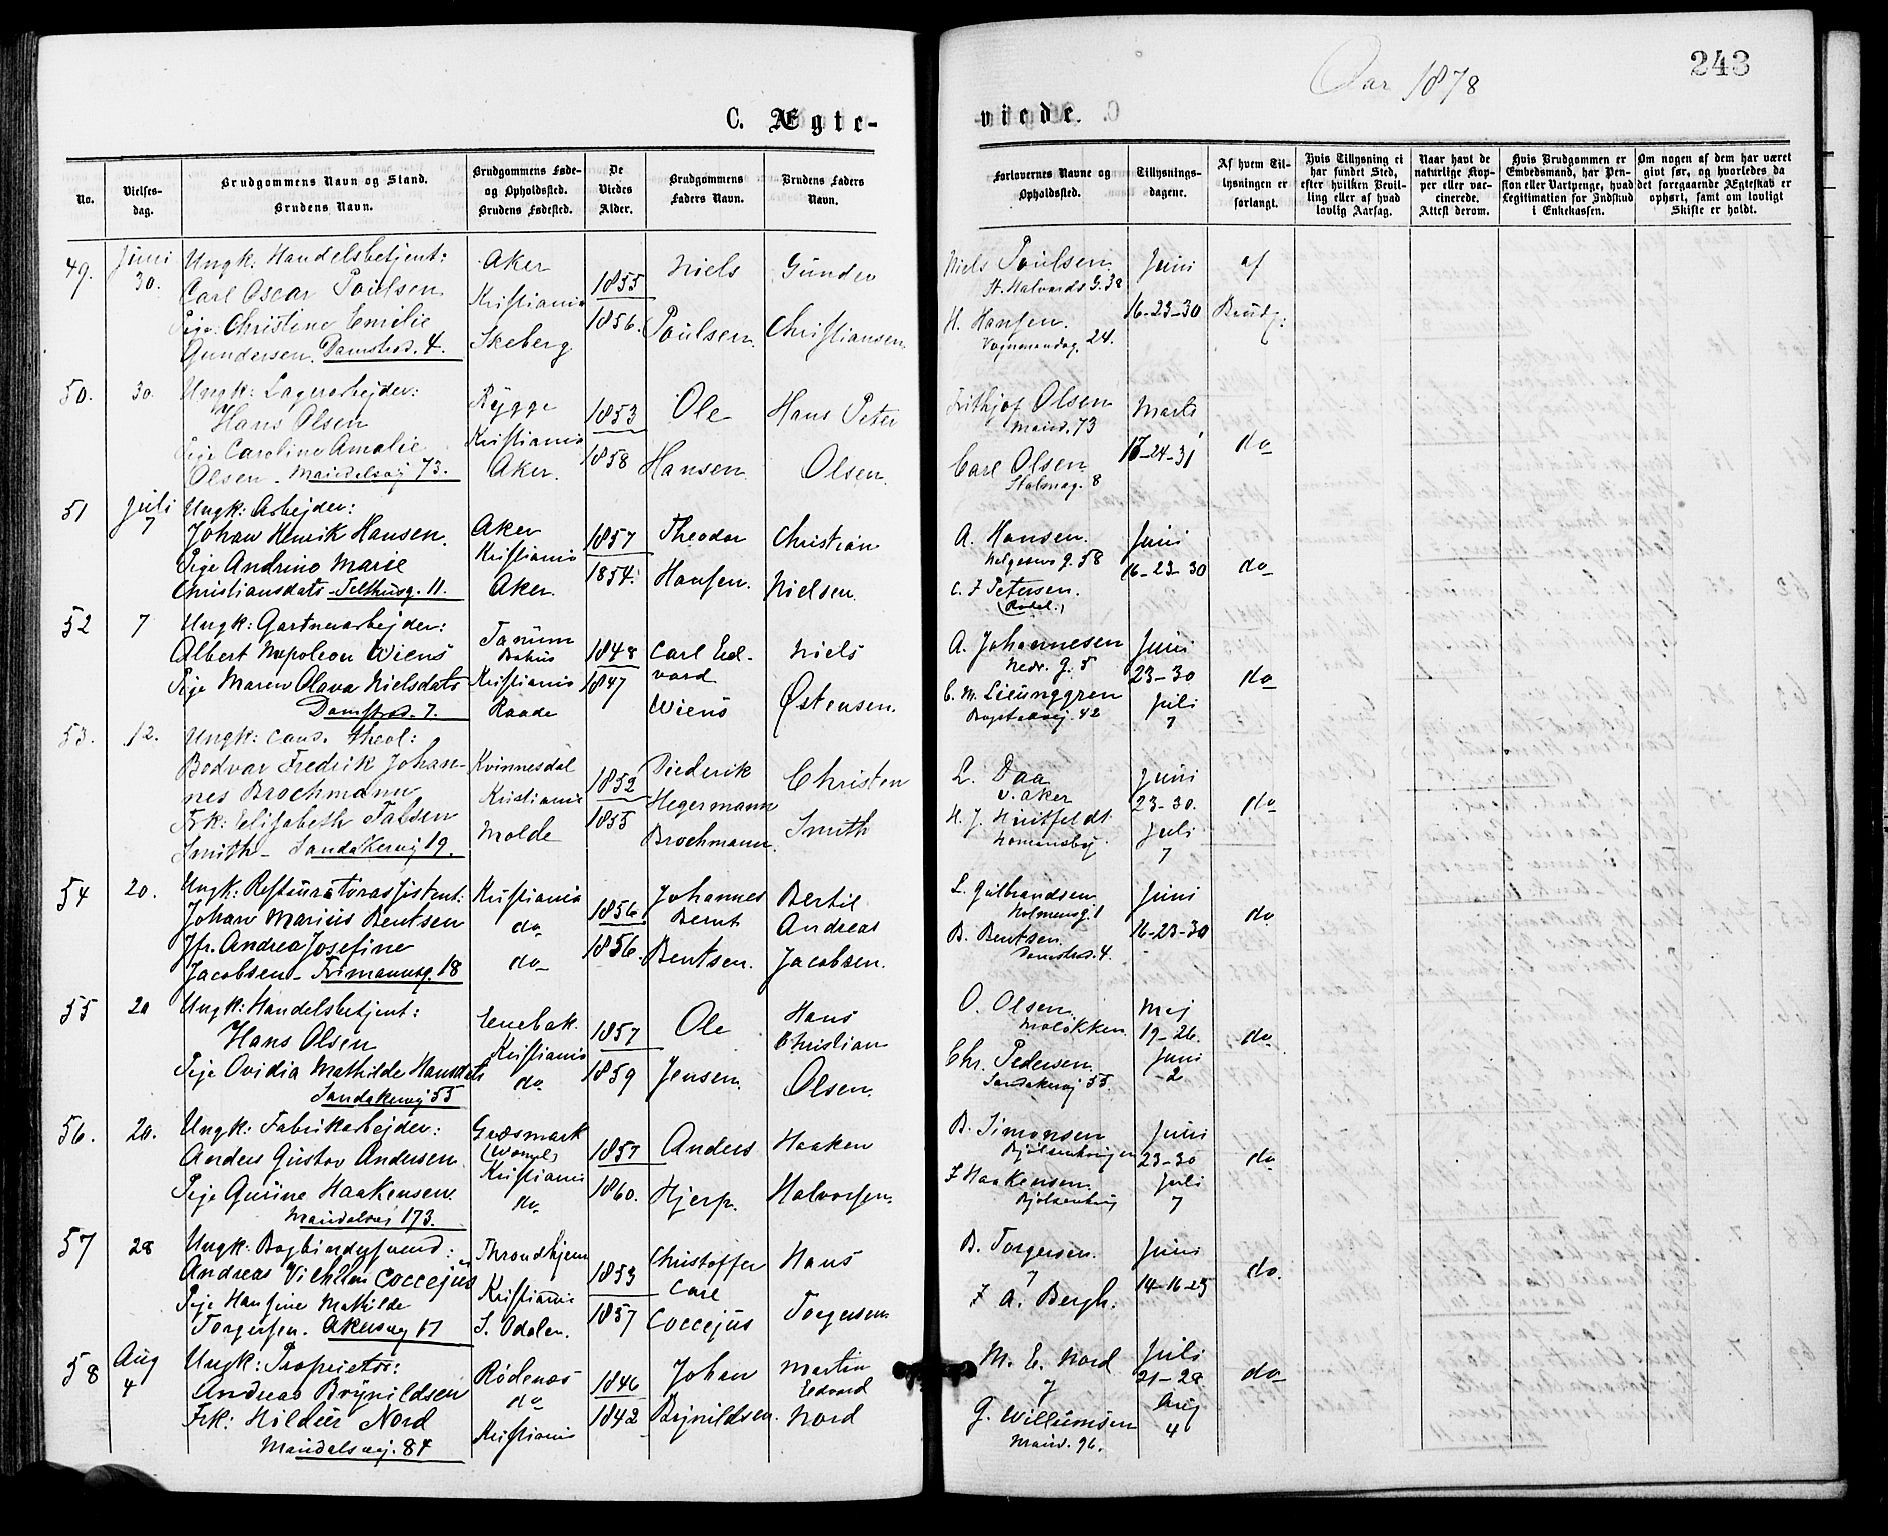 Aar 1878
243
C. Ægte-
viede.
No.
Vielses-
dag.
Brudgommens Navn og Stand.
Brudens Navn.
Brudgommens Føde-
og Opholdssted.
Brudens Fødested.
De
Viedes
Alder.
Brudgommens
Faders Navn.
Brudens Faders
Navn.
Forlovernes Navne og
Opholdssted.
Tillysnings-
dagene.
Af hvem Til-
lysningen er
forlangt.
Hvis Tillysning ei
har fundet Sted,
efter hvilken Bevil-
ling eller af hvad
lovlig Aarsag.
Naar havt de
naturlige Kop-
per eller vac-
cinerede.
Attest derom.
Hvis Brudgommen er
Embedsmand, har Pen-
sion eller Vartpenge, hvad
Legitimation for Indskud
i Enkekassen.
Om nogen af dem har været
gift før, og hvorledes da
det foregaaende Ægteskab er
ophørt, samt om lovligt
Skifte er holdt.
49.
Juni
30.
Ungk: Handelsbetjent:
Carl Oscar Poulsen
Pige: Christine Emilie
Gundersen. Damstred. 4.
Aker
Kristiania
Skeberg
1855
1856.
Niels
Poulsen.
Gunder
Christiansen.
Niels Poulsen
St. Halvards G. 38
H. Hansen.
Vognmandsg. 24.
Juni
16-23-30
af
Brudg:
50.
30.
Ungk: Lagerarbejder:
Hans Olsen
Pige Caroline Amalie
Olsen - Maridalsvej 73.
Rygge
Kristiania
Aker.
1853
1858
Ole
Hansen
Hans Peter
Olsen.
Frithjof Olsen
Marid. 73
Carl Olsen
8
Marts
17-24-31
do
51
Juli
7
Ungk: Arbejder:
Johan Henrik Hansen.
Pige Andrine Marie
Christiansdatr - Telthusg. 11.
Aker
Kristiania
Aker.
1857
1854.
Theodor
Hansen.
Christian
Nielsen.
A. Hansen.
Helgesens g. 58
C. F. Petersen.
Juni
16-23-30
do
52
7
Ungk: Gartnerarbejder:
Albert Napoleon Wiens
Pige Maren Olava Nielsdatr
Damstred. 7.
Tanum
Bahus
Kristiania
Raade
1848
1847
Carl Ed-
vard
Wiens
Niels
Østensen.
A. Johannesen
Nedr. g. 5
C. M. Lieunggren
Bogstadvej. 42
Juni
23-30
Juli
7
do
53.
12.
Ungk: cand. theol:
Bodvar Fredrik Johan-
nes Brochmann
Frk: Elisabeth Falsen
Smith - Sandakervej 19.
Kvinnesdal
Kristiania
Molde
1852
1855
Diederik
Hegermann
Brochmann.
Christen
Smith
L. Daa
V. Aker
H. J. Huitfeldt
Homansby
Juni
23-30.
Juli
7
do
54
20.
Ungk: Restauratørassistent:
Johan Marius Bentsen
Jfr. Andrea Josefine
Jacobsen - Frimannsg. 18
Kristiania
do
do
1856
1856.
Johannes
Bernt
Bentsen.
Bertil
Andreas
Jacobsen.
L. Gulbrandsen
Holmensg. 1
B. Bentsen.
Damstred. 4.
Juni
16-23-30
do
55
20
Ungk: Handelsbetjent:
Hans Olsen
Pige Ovidia Mathilde Hansdatr
Sandakervej 55
Enebak.
Kristiania
do
1857
1859
Ole
Jensen.
Hans
Christian
Olsen.
O. Olsen.
Moløkken
Chr. Pedersen.
Sandakervej 55.
Mej
19-26.
Juni
2
do
56.
20.
Ungk: Fabrikarbejder:
Anders Gustav Andersen
Pige Gurine Haakensen.
Maridalsvej 173.
Græsmark
Kristiania
do
1857
1860.
Anders
Hjerp.
Haaken
Halvorsen.
B. Simonsen
F Haakensen.
Bjølsenhaug
Juni
23-30
Juli
7
do
57
28
Ungk: Bogbindersvend:
Andreas Vilhelm Coccejus
Pige Hansine Mathilde
Torgersen. Akersvej 17
Throndhjem
Kristiania
S. Odalen.
1853
1857
Christoffer
Carl
Coccejus
Hans
Torgersen.
B. Torgersen.
F. A. Bergh.
Juni
14-16-23
do.
58
Aug
4
Ungk: Proprietær:
Andreas Brynildsen
Frk: Hildur Nord
Maridalsvej. 84
Rødenæs
do
Kristiania
1846
1842
Johan
Brynildsen.
Martin
Edvard
Nord
M. E. Nord
G. Willumsen
Marid. 96.
Juli
21-28
Aug
4
do